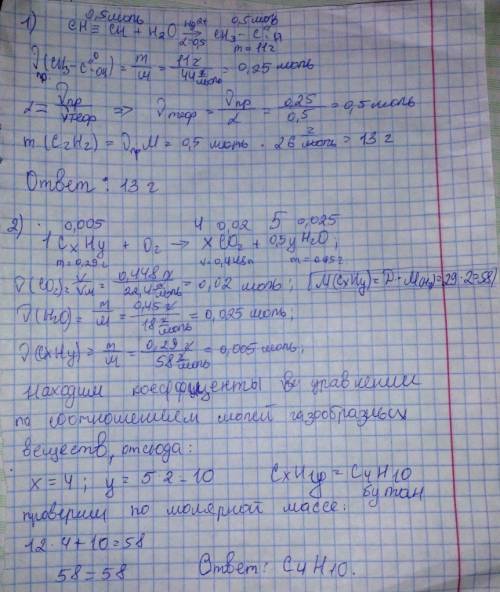 1) 0,5моль 0,5моль
CH≡CH + H₂O Hg²⁺→ CH₃-C
α=0,5 m=11г
ν пр (CH₃-C) = m/M = 11г / 44 г/моль = 0,25 моль
α = νпр/νтеор => νтеор = νпр/α = 0,25/0,5 = 0,5 моль
m(C₂H₂) = ν M = 0,5 моль · 26 г/моль = 13 г
Ответ: 13 г
2) 0,005 4 0,02 5 0,025
1 CxHy + O₂ → xCO₂ + 0,5yH₂O;
m=0,29г V=0,448л m=0,45г
ν(CO₂) = V/Vм = 0,448 л / 22,4 л/моль = 0,02 моль; [M(CxHy) = D · M(H₂) = 29·2=58]
ν(H₂O) = m/M = 0,45 г / 18 г/моль = 0,025 моль;
ν(CxHy) = m/M = 0,29 г / 58 г/моль = 0,005 моль;
Находим коефициенты в уравнении
по соотношением молей газообразных
веществ, отсюда:
x = 4; y = 5·2=10 CxHy = C₄H₁₀
бутан
проверим по молярной массе:
12·4+10=58
58=58 Ответ: C₄H₁₀.